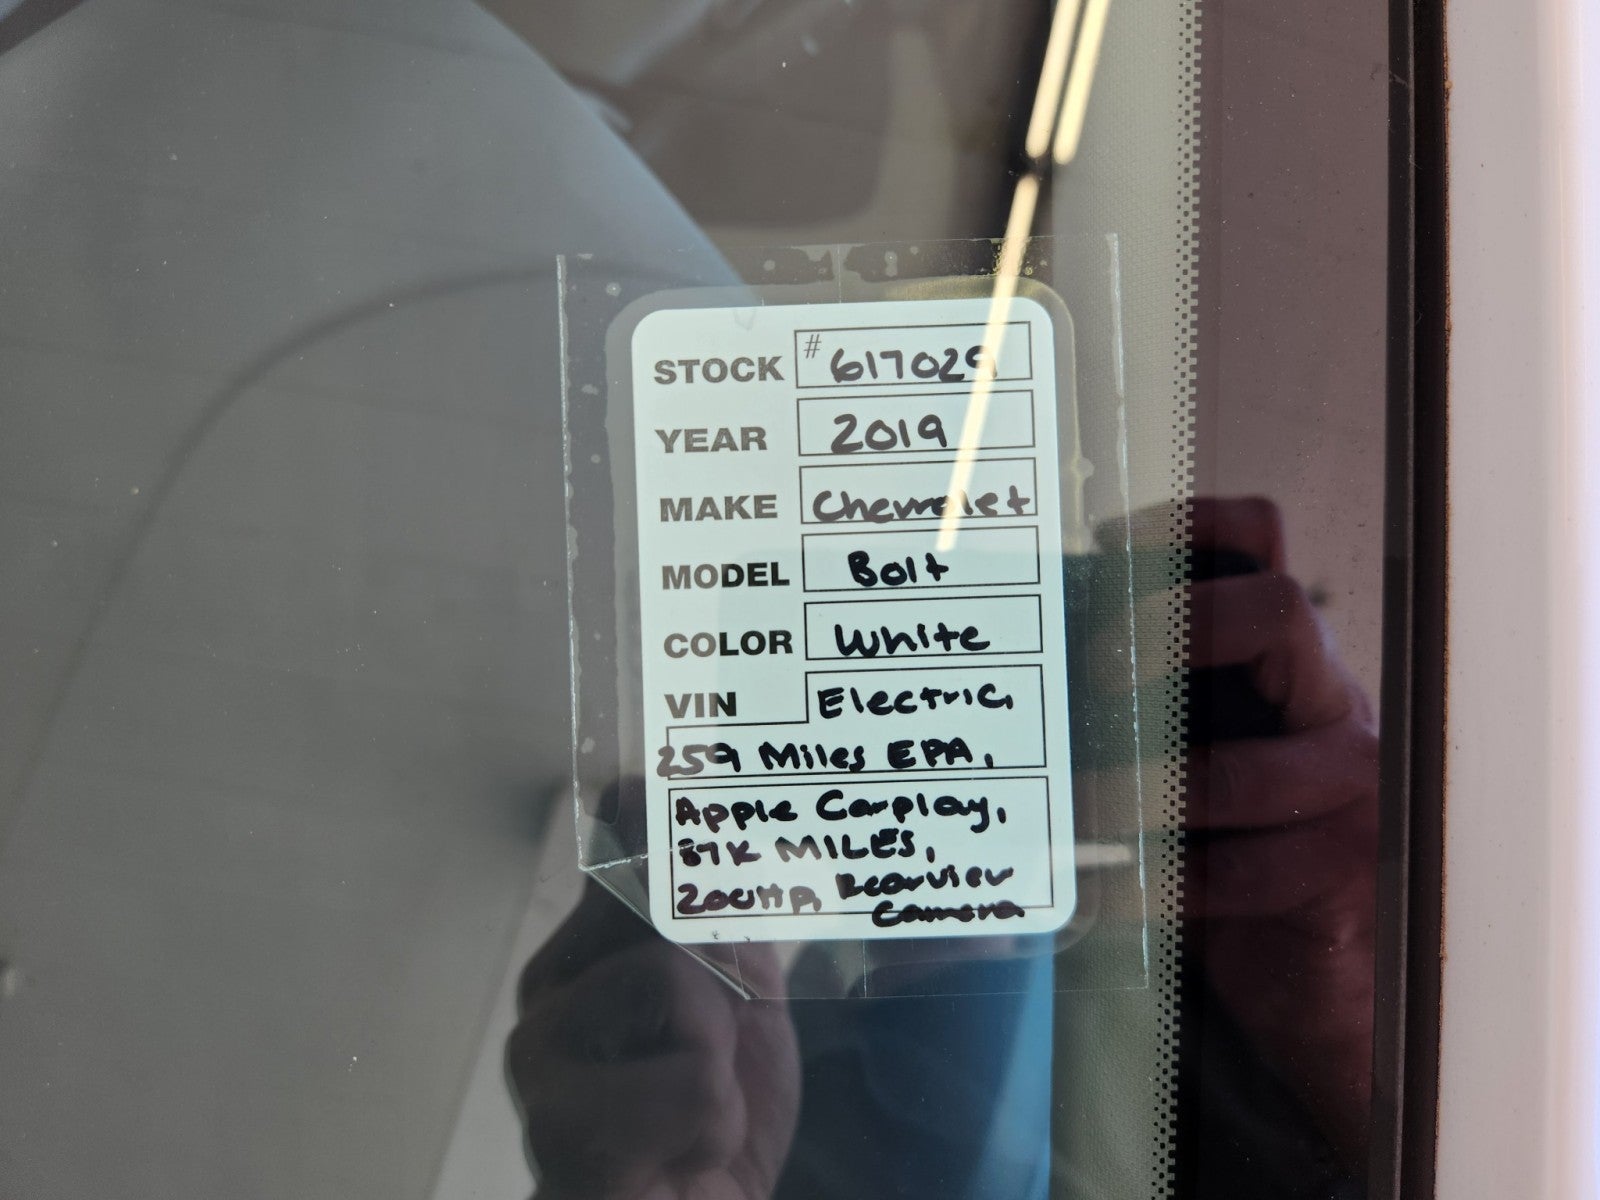 STOCK # 617029
YEAR 2019
MAKE Chevrolet
MODEL Bolt
COLOR White
VIN Electric,
259 Miles EPA,
Apple Carplay,
87K MILES,
200Hp, Rearview
Camera